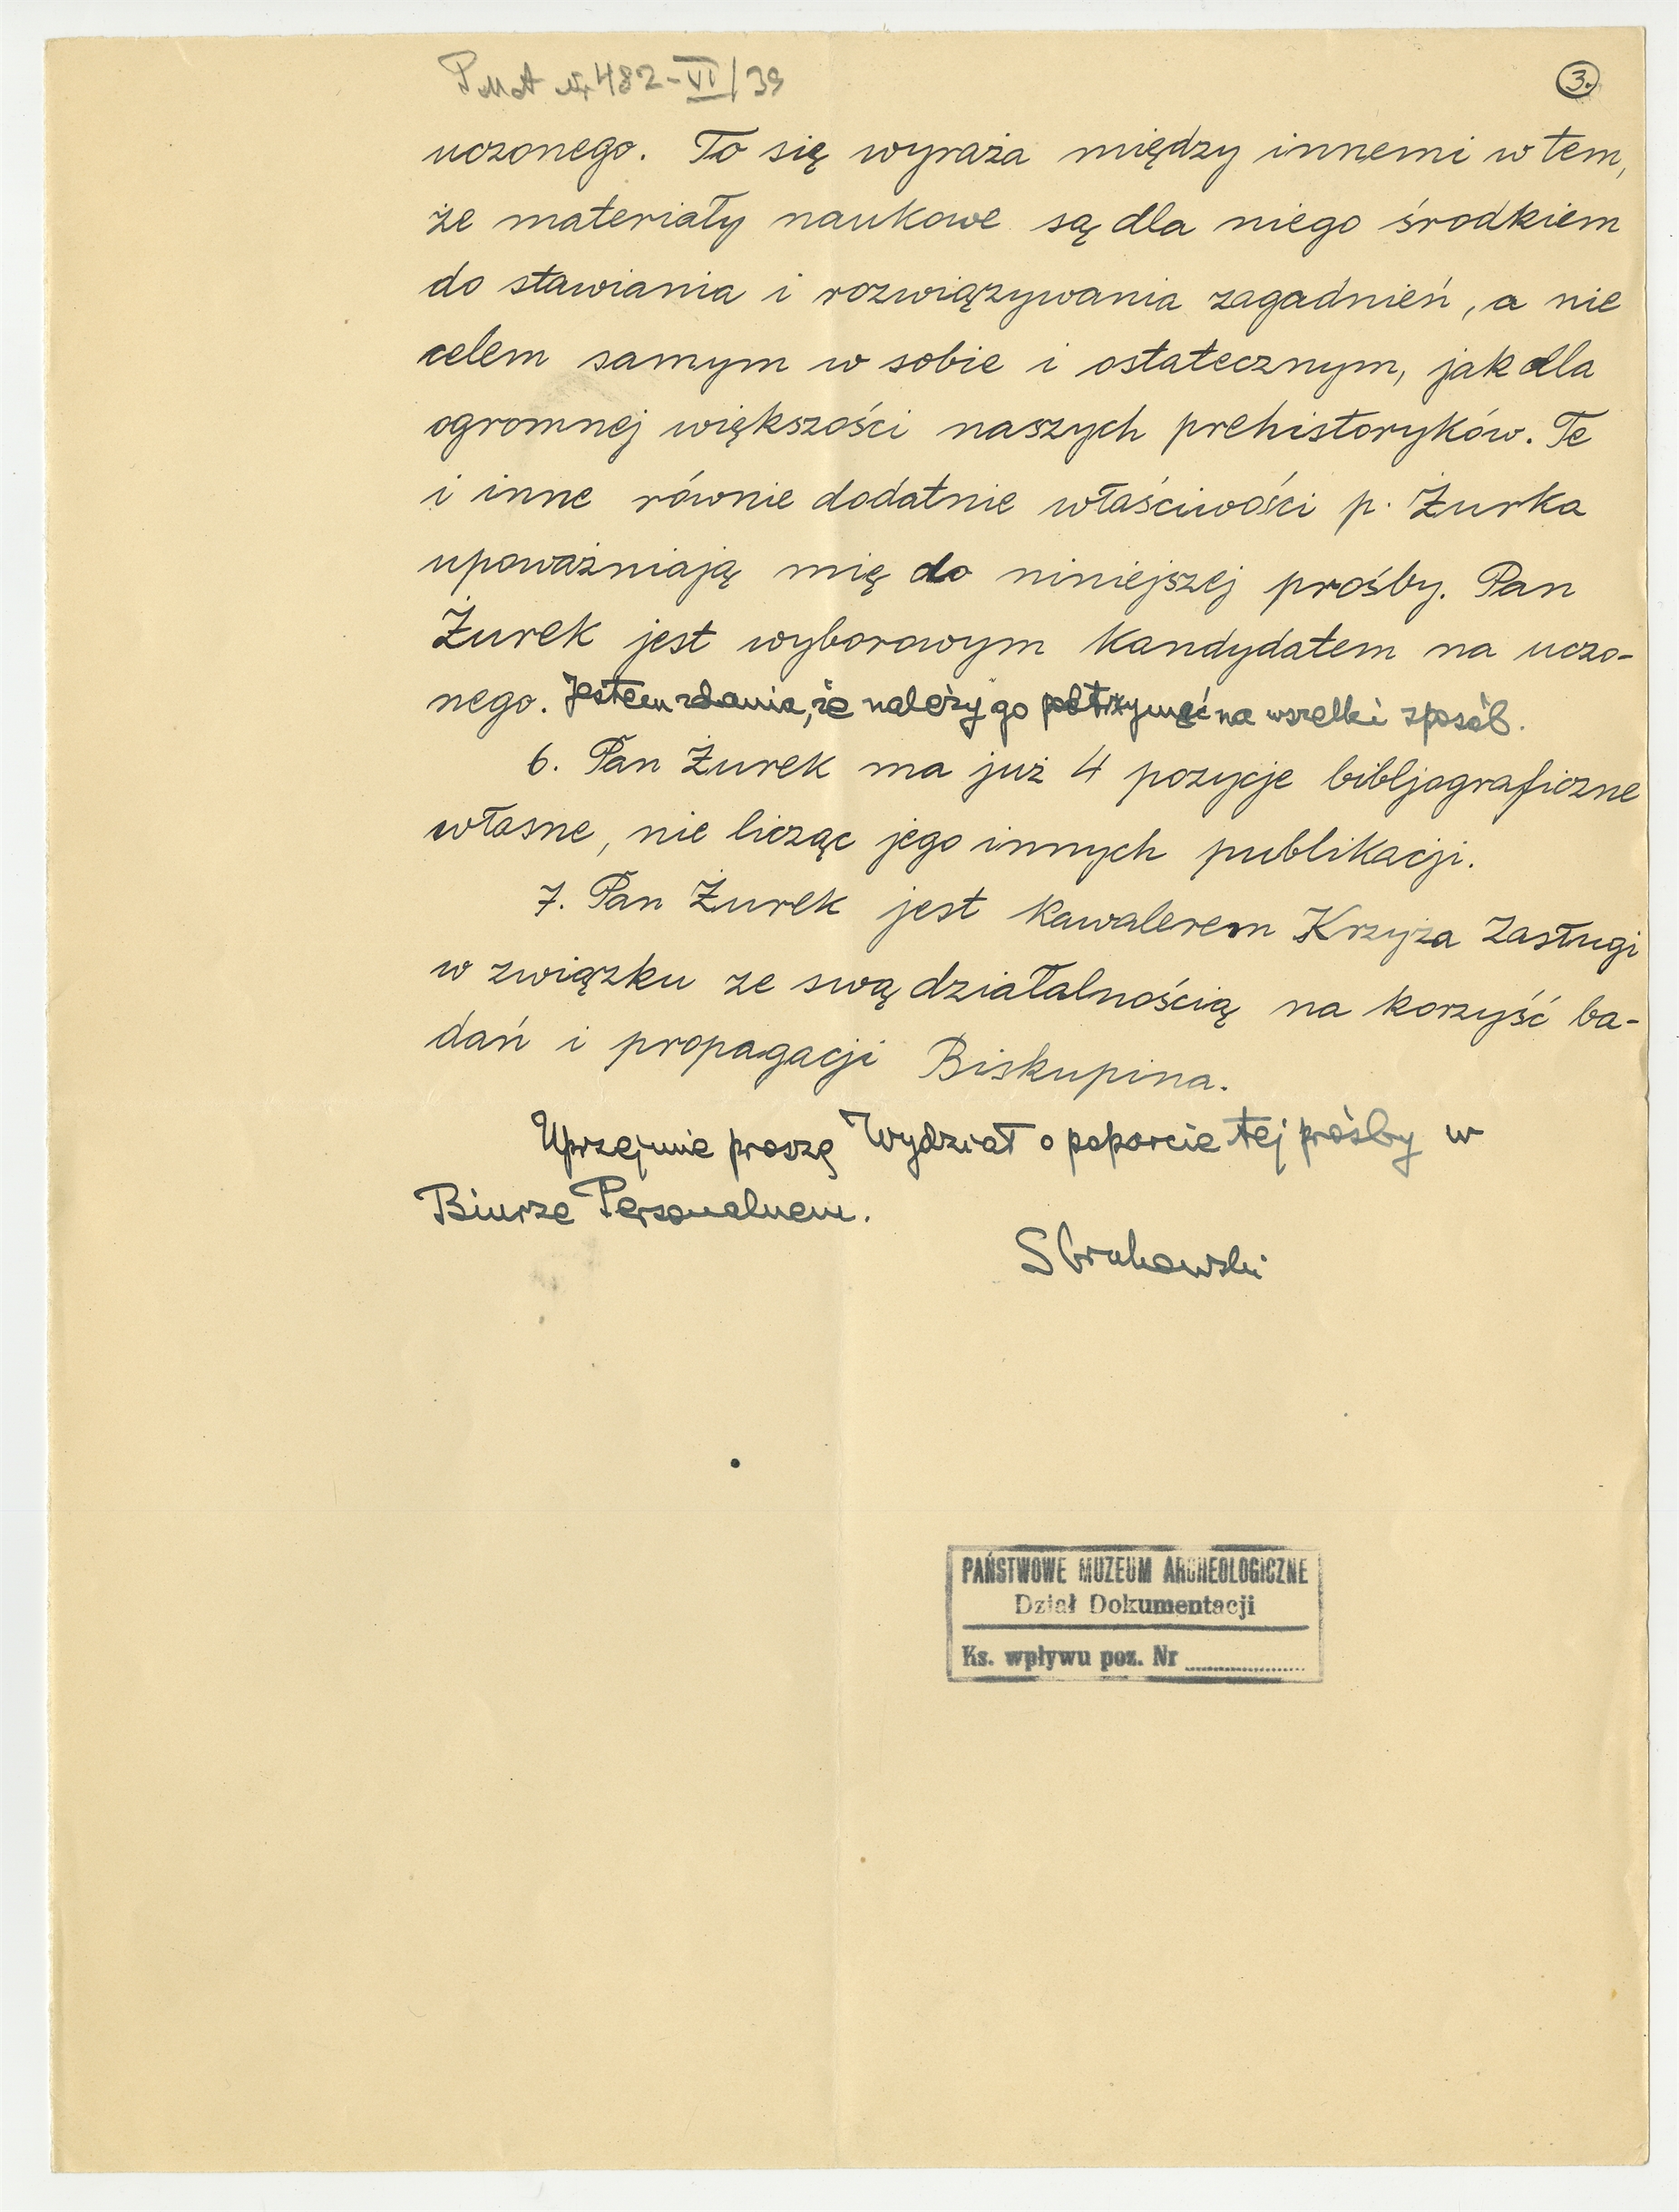 PMA nr 482-VI/39
3.
uczonego. To się wyraża między innemi w tem,
że materiały naukowe są dla niego środkiem
do stawiania i rozwiązywania zagadnień, a nie
celem samym w sobie i ostatecznym, jak dla
ogromnej większości naszych prehistoryków. Te
i inne równie dodatnie właściwości p. Żurka
upoważniają mię do niniejszej prośby. Pan
Żurek jest wyborowym kandydatem na uczo-
nego. Jestem zdania, że należy go podtrzymać na wszelki sposób.
6. Pan Żurek ma już 4 pozycje bibljograficzne
własne, nie licząc jego innych publikacji.
7. Pan Żurek jest kawalerem Krzyża Zasługi
w związku ze swą działalnością na korzyść ba-
dań i propagacji Biskupina.
Uprzejmie proszę Wydział o poparcie tej prośby w
Biurze Personalnem.
S Krukowski
PAŃSTWOWE MUZEUM ARCHEOLOGICZNE
Dział Dokumentacji
Ks. wpływu poz. Nr